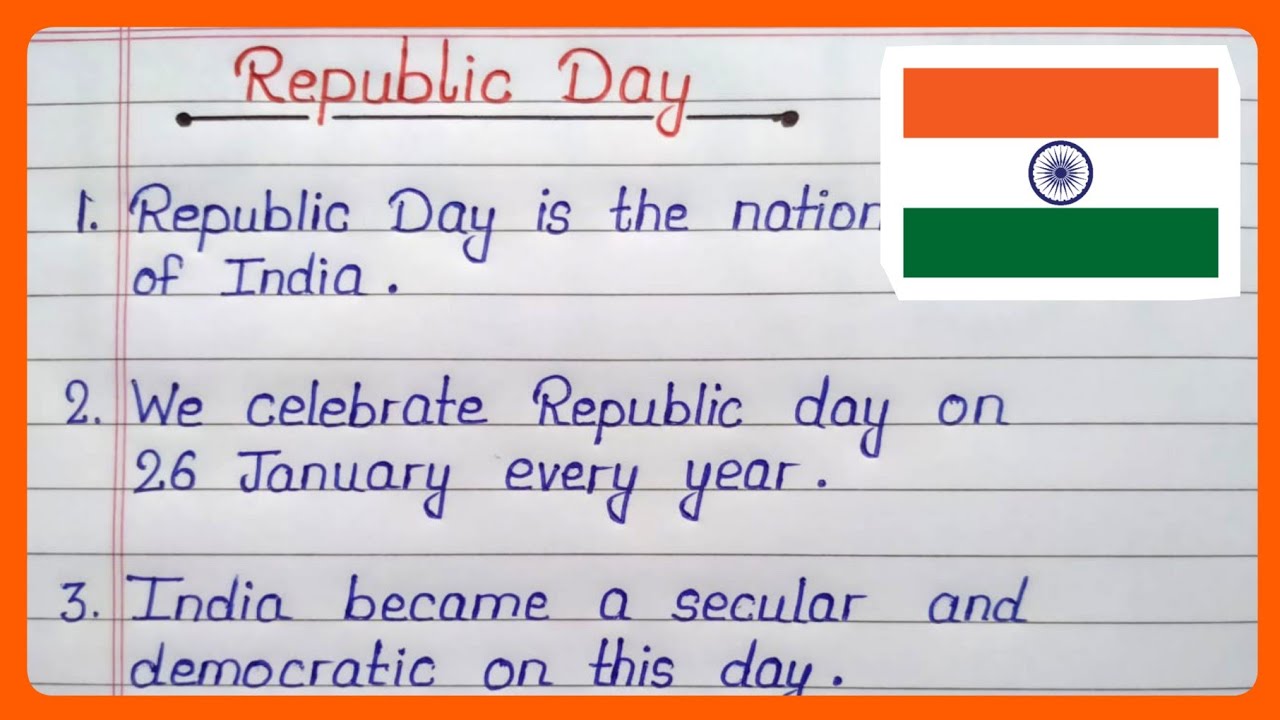 Republic Day
1. Republic Day is the nation
of India.
2. We celebrate Republic day on
26 January every year.
3. India became a secular and
democratic on this day.